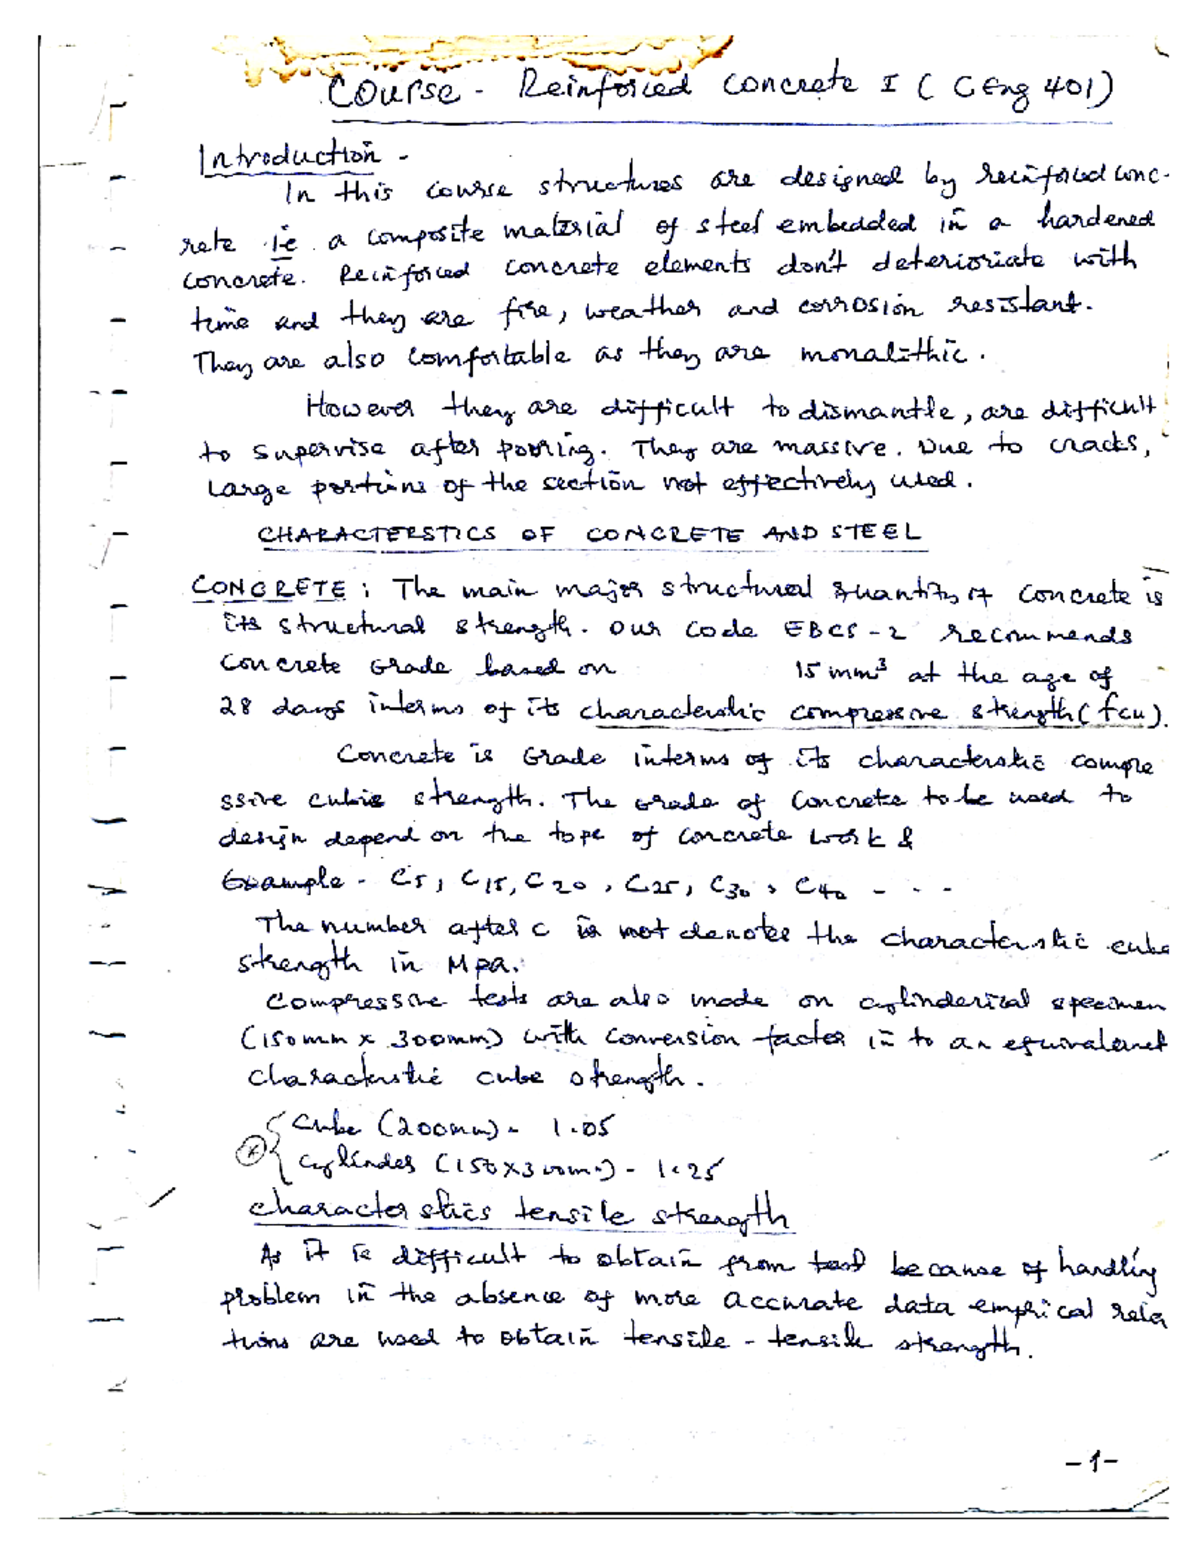 Course - Reinforced Concrete I ( CEng 401)
Introduction -
In this course structures are designed by reinforced conc-
rete ie a composite material of steel embedded in a hardened
concrete. Reinforced concrete elements don't deterioriate with
time and they are fire, weather and corrosion resistant.
They are also comfortable as they are monalithic.
However they are difficult to dismantle, are difficult
to supervise after pouring. They are massive. Due to cracks,
Large portions of the section not effectively used.
CHARACTERSTICS OF CONCRETE AND STEEL
CONCRETE : The main major structural quantity of concrete is
its structural strength. Our code EBCS-2 recommends
Concrete Grade based on 15 mm³ at the age of
28 days interms of its characterstic compressive strength (fcu).
Concrete is Grade interms of its characterstic compre
ssive cubic strength. The grade of concrete to be used to
design depend on the type of concrete work &
Example - C5, C15, C20, C25, C30, C40 - - -
The number after C is not denotes the characterstic cube
strength in Mpa.
Compressive tests are also made on cylinderical specimen
(150mm x 300mm) with conversion factor in to an equivalent
characterstic cube strength.
Cube (200mm) - 1.05
Cylinder (150x300mm) - 1.25
characterstics tensile strength
As it is difficult to obtain from test because of handling
problem in the absence of more accurate data emprical rela
tions are used to obtain tensile - tensile strength.
-1-